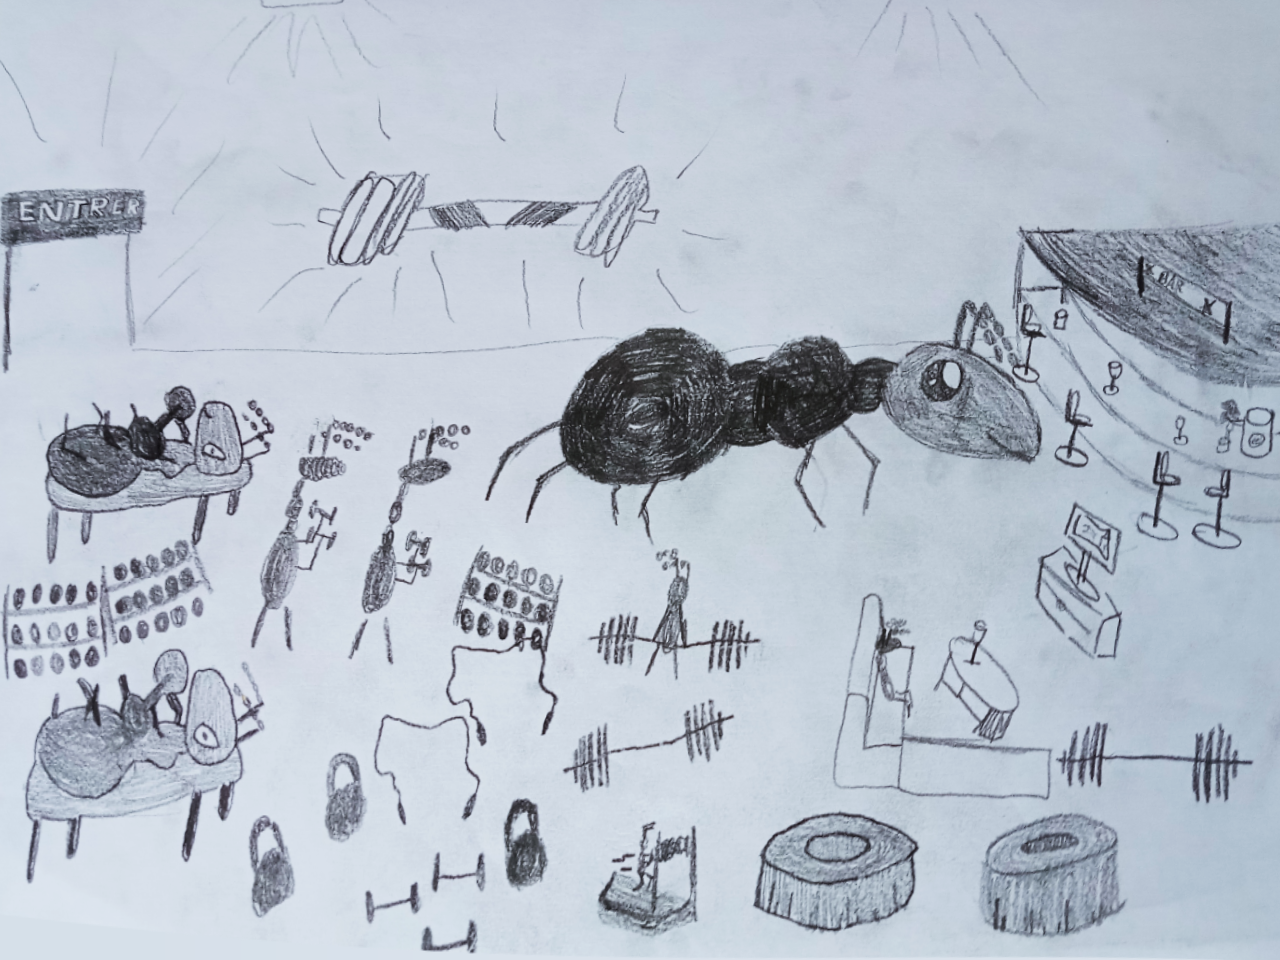 ENTRER
BAR